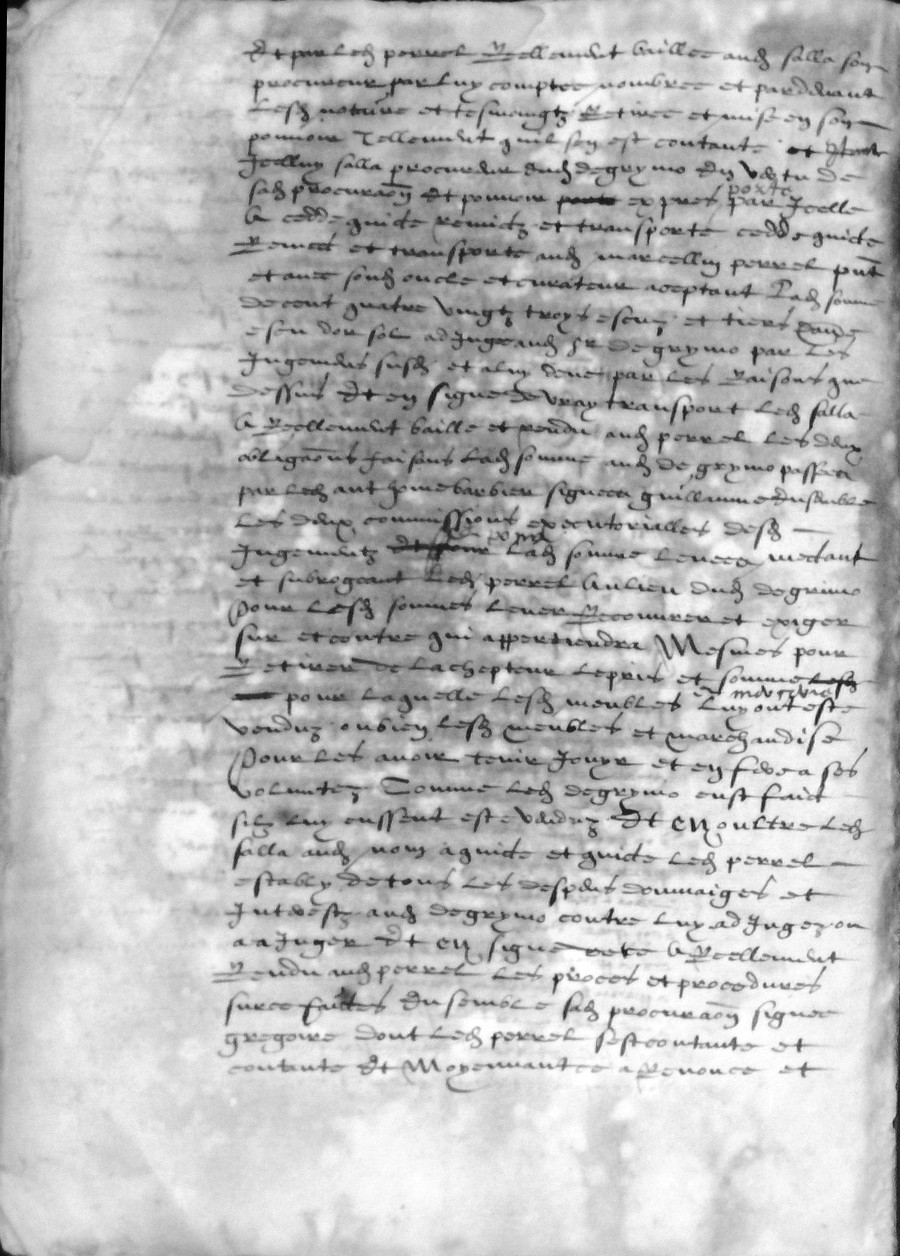 Et par led perrel Reellement baillee aud salla son
procureur par luy comptee nombree et par devant
lesd notaire et tesmoingtz Retiree et mise en son
pouvoir Tellement quil sen est contante et
Icelluy salla procureur dud degrymo En vertu de
sad procuraon et pouvoir expres porte par Icelle
A cedde quicte remictz et transporte cedde quicte
Remect et transporte aud marcellin perrel pnt
et avec sond oncle et curateur aceptant Lad somme
de cent quatre vingtz troys escuz et tiers
escu dor sol adJuge aud sr de grymo par les
Jugemens susd et a luy deue par les Raisons que
dessus Et en signe de vray transport led salla
A Reellement baille et rendu aud perrel les deux
obligaons faisans lad somme aud de grymo passees
par led anthoine barbier signees guillaume Ensemble
les deux commissions executorialles desd
Jugementz lad somme levees mectant
et subrogeant led perrel Au lieu dud degrimo
Pour lesd sommes lever Recouvrer et exiger
sur et contre qui appertiendra Mesmes pour
Retirer de lachepteur le pris et somme
pour laquelle lesd meubles et luy ont este
venduz ou bien lesd meubles et marchandise
Pour les avoir tenir Jouyr et en fere a ses
voluntez Comme led degrymo eust faict
silz luy eussent este venduz Et en oultre led
salla aud nom a quicte et quicte led perrel
estably de tous les despens dommaiges et
Interestz aud degrymo contre luy adJugez ou
a aJuger Et en signe A Reellement
Rendu aud perrel les proces et procedures
sur ce faictes Ensemble sad procuraon signee
gregoire dont led perrel sest contante et
contante Et Moyennant ce a Renonce et